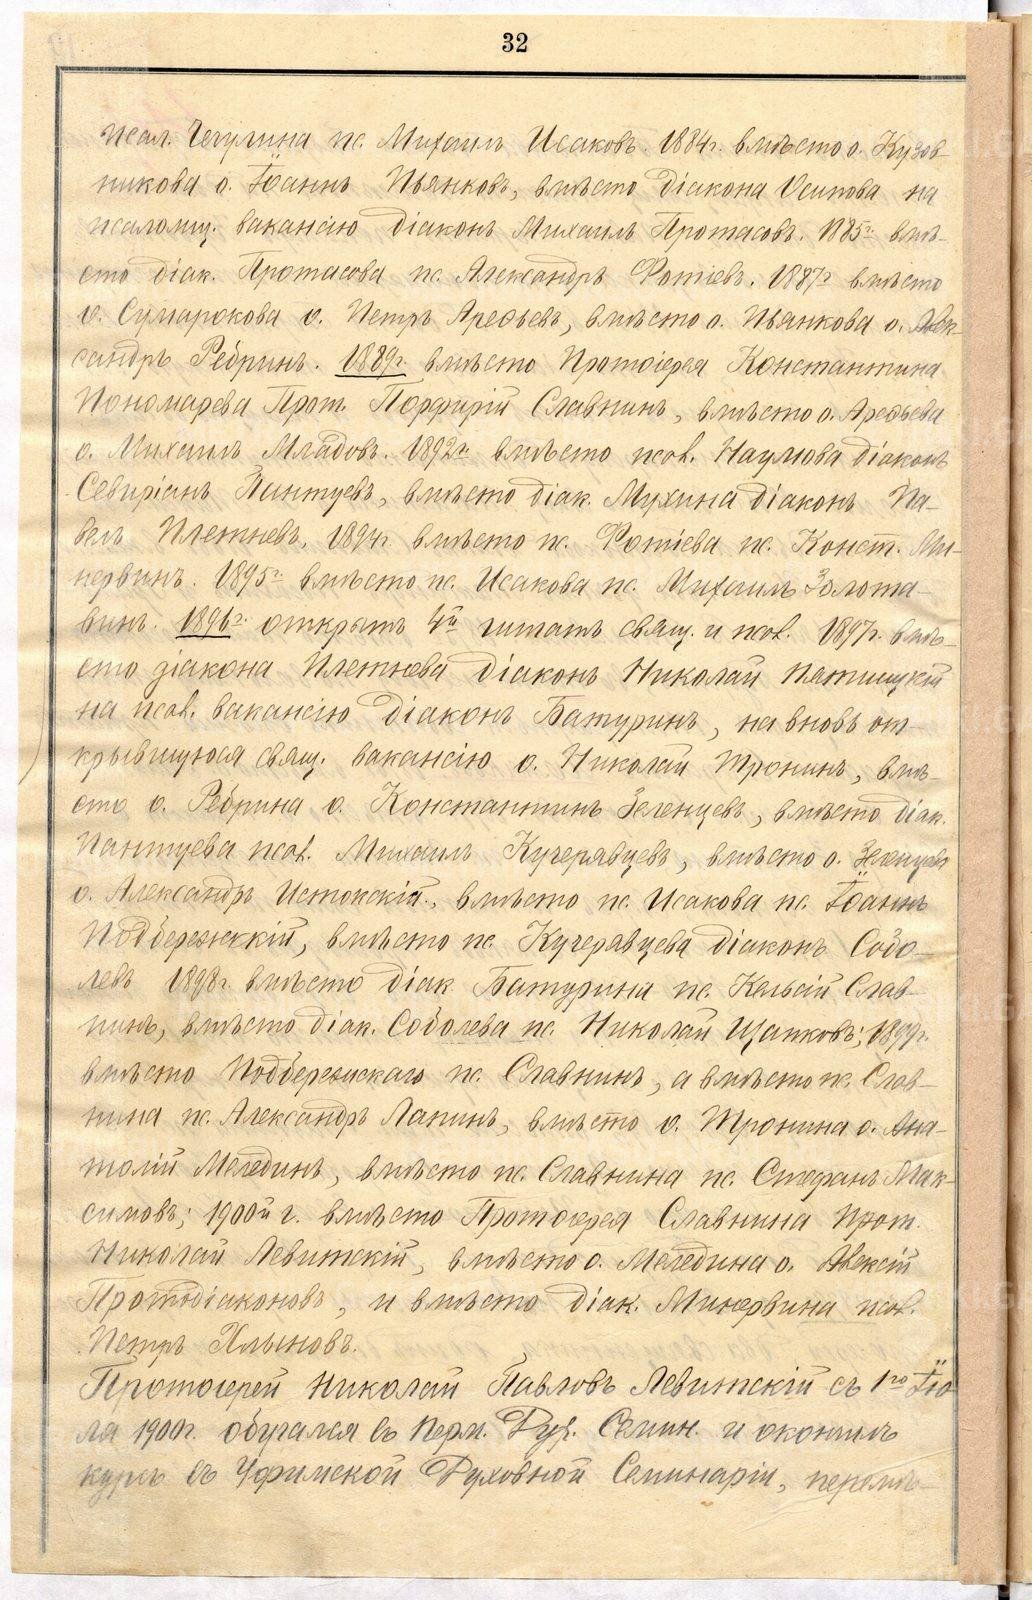 32
псал. Чегулина пс. Михаилъ Исаковъ. 1884г. вмѣсто о. Кузов-
никова о. Іоаннъ Пьянковъ, вмѣсто діакона Осипова на
псаломщ. вакансію діаконъ Михаилъ Протасовъ. 1885г. вмѣ-
сто діак. Протасова пс. Александръ Фотіевъ. 1887г вмѣсто
о. Сумарокова о. Петръ Арефьевъ, вмѣсто о. Пьянкова о. Алек-
сандръ Ребринъ. 1889г. вмѣсто Протоіерея Константина
Пономарева Прот. Порфирій Славнинъ, вмѣсто о. Арефьева
о. Михаилъ Младовъ. 1892г. вмѣсто псал. Наумова діаконъ
Севиріанъ Пантуевъ, вмѣсто діак. Мухина діаконъ Па-
велъ Плетневъ, 1894г вмѣсто пс. Фотіева пс. Конст. Ми-
нервинъ. 1895г. вмѣсто пс. Исакова пс. Михаилъ Золота-
винъ. 1896г. открытъ 4й штатъ свящ. и псал. 1897г. вмѣ-
сто діакона Плетнева діаконъ Николай Пятницкій
на псал. вакансію діаконъ Батуринъ, на вновь от-
крывшуюся свящ. вакансію о. Николай Тронинъ, вмѣ-
сто о. Ребрина о. Константинъ Зеленцевъ, вмѣсто діак.
Пантуева псал. Михаилъ Кучерявцевъ, вмѣсто о. Зеленцева
о. Александръ Истокскій, вмѣсто пс. Исакова пс. Іоаннъ
Подбережскій, вмѣсто пс. Кучерявцева діаконъ Собо-
левъ 1898г. вмѣсто діак. Батурина пс. Кельсій Слав-
нинъ, вмѣсто діак. Соболева пс. Николай Щапковъ; 1899г.
вмѣсто Подбережскаго пс. Славнинъ, а вмѣсто пс. Слав-
нина пс. Александръ Лапинъ, вмѣсто о. Тронина о. Ана-
толій Мелединъ, вмѣсто пс. Славнина пс. Стефанъ Мак-
симовъ; 1900й г. вмѣсто Протоіерея Славнина Прот.
Николай Левитскій, вмѣсто о. Меледина о. Алексій
Протодіаконовъ, и вмѣсто діак. Минервина псал.
Петръ Хлыновъ.
Протоіерей Николай Павловъ Левитскій съ 1го Ію-
ля 1900г. обучался въ Перм. Дух. Семин. и окончилъ
курсъ въ Уфимской Духовной Семинаріи, перемѣ-